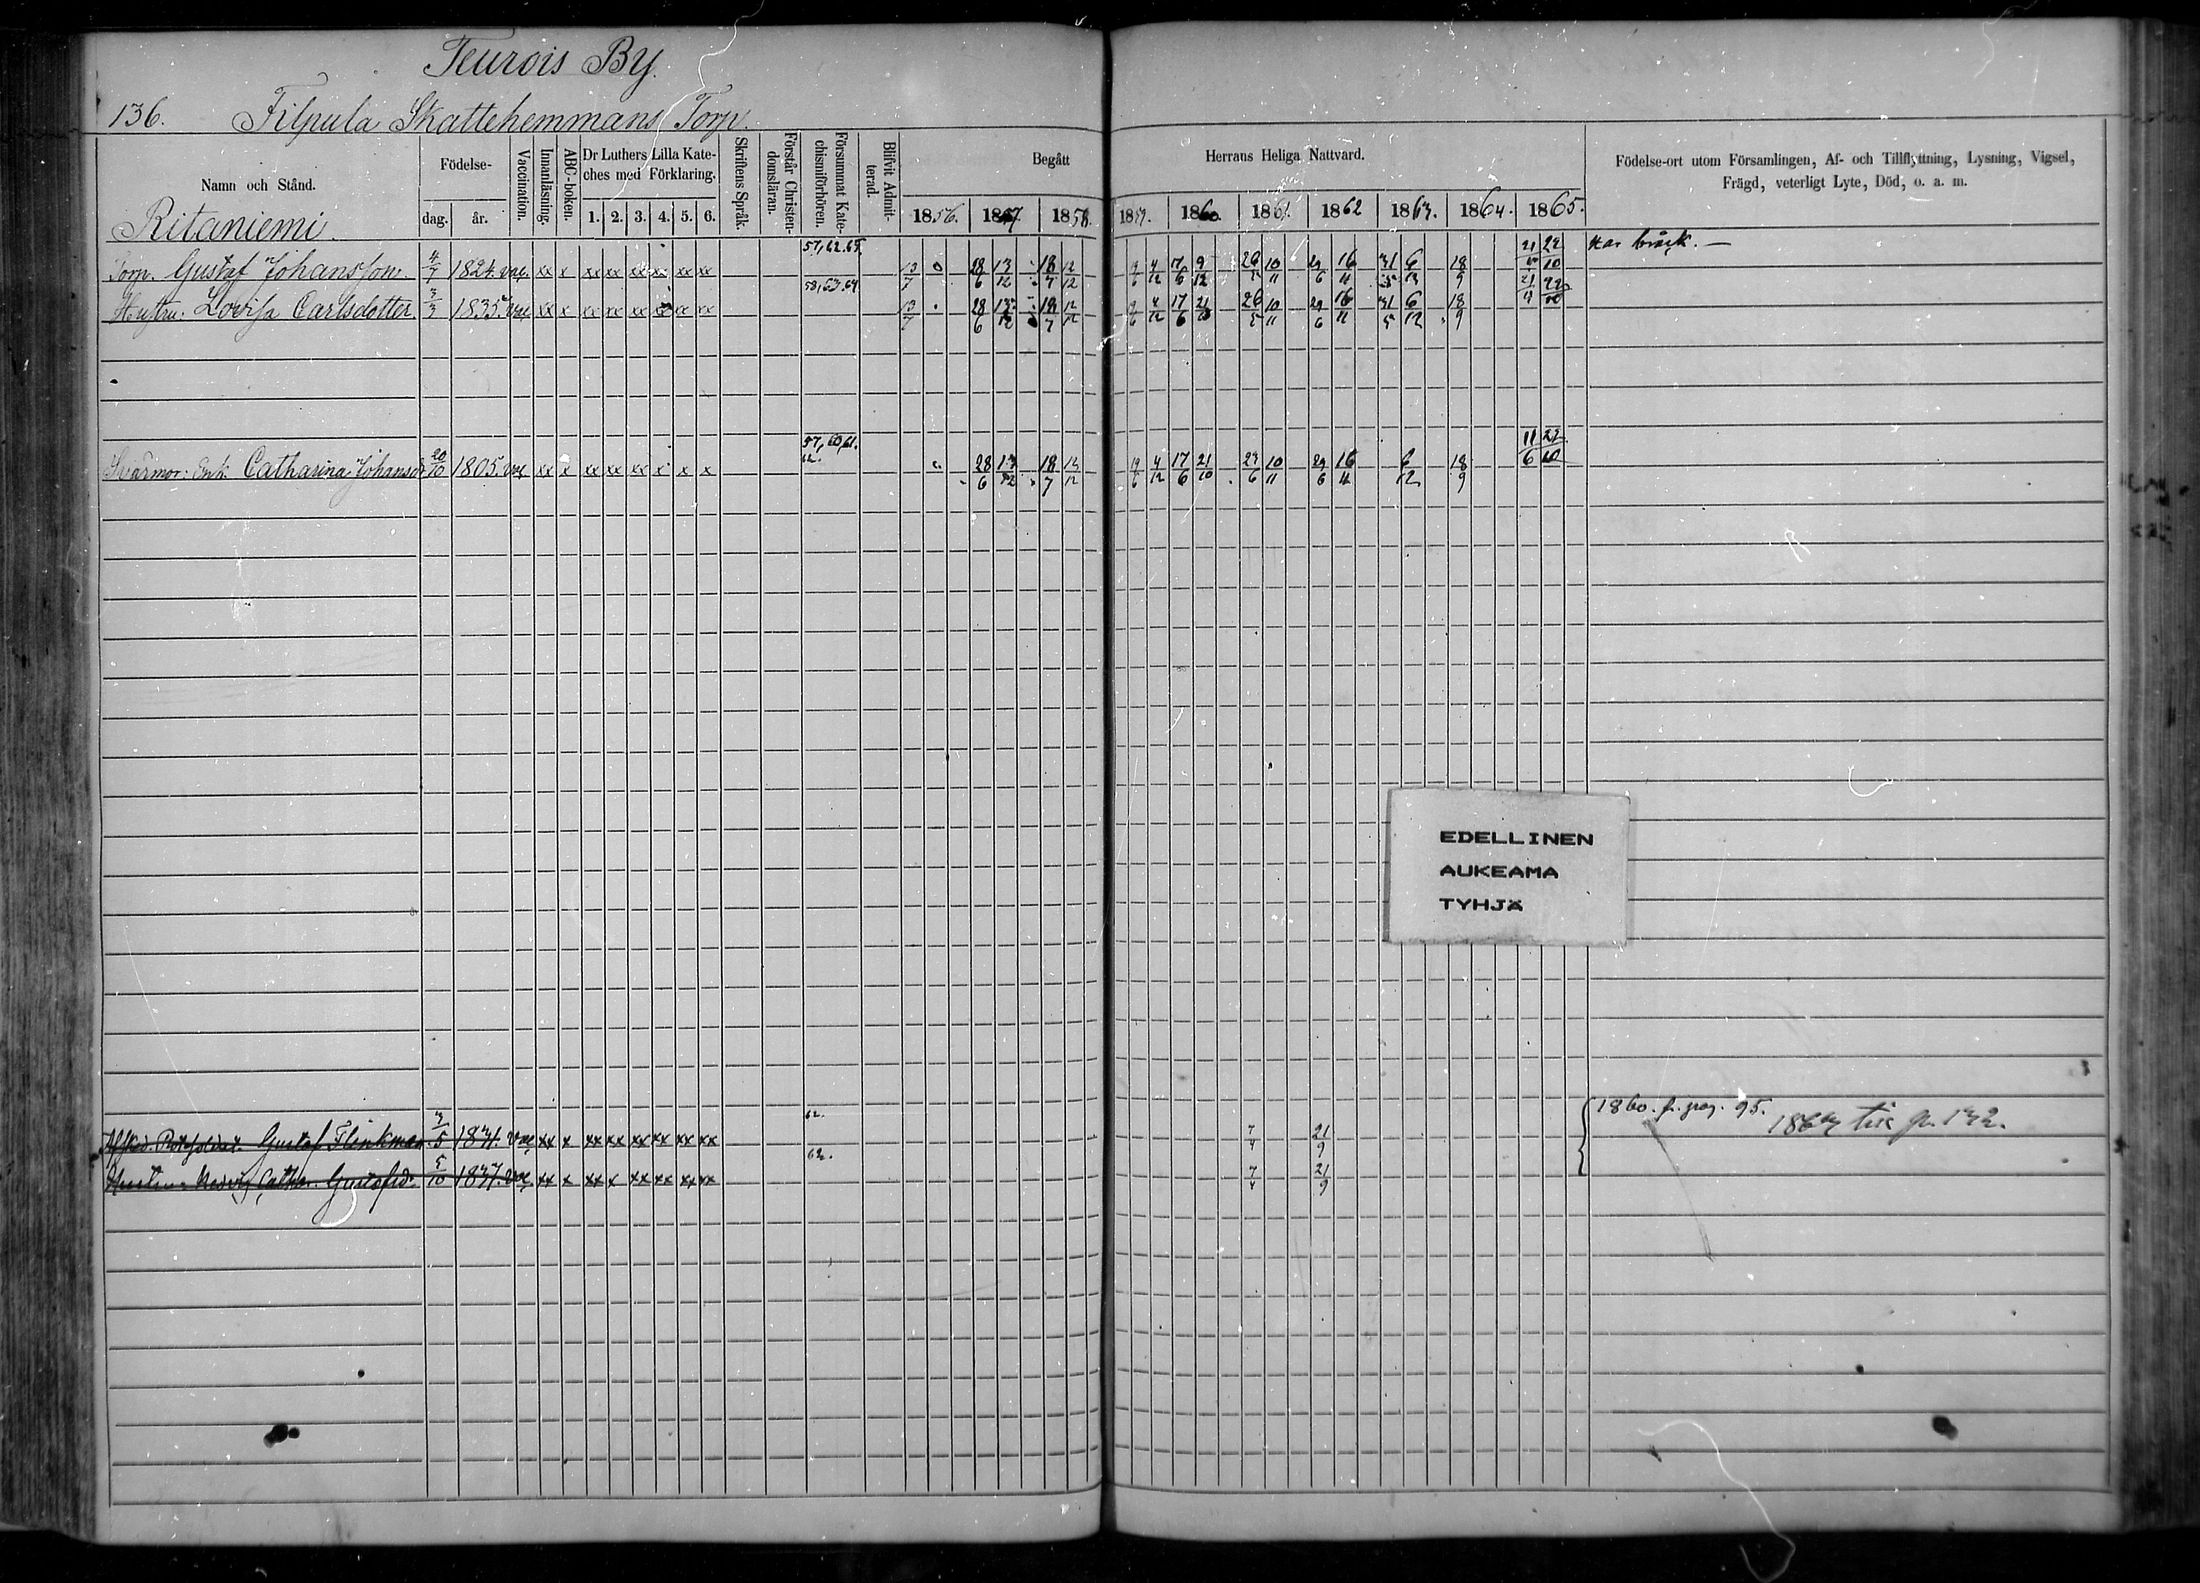 Teurois By.
136. Filpula Skattehemmans Torp.
Namn och Stånd.
Födelse-
dag. år.
Vaccination.
Innanläsning.
ABC-boken.
Dr Luthers Lilla Kate-
ches med Förklaring.
1. 2. 3. 4. 5. 6.
Skriftens Språk.
Förstår Christen-
domsläran.
Försummat Kate-
chismiförhören.
Blifvit Admit-
terad.
Begått Herrans Heliga Nattvard.
1856. 1857 1858. 1859. 1860. 1861. 1862 1863. 1864. 1865.
Födelse-ort utom Församlingen, Af- och Tillflyttning, Lysning, Vigsel,
Frägd, veterligt Lyte, Död, o. a. m.
Ritaniemi.
57, 62. 65.
Torp. Gustaf Johansson. 4/7 1824. vac. xx x xx xx xx xx xx xx 13/7 28/6 13/12 18/7 12/12 4/12 17/6 9/12 26/5 10/11 29/6 16/11 31/5 6/12 18/9 22/10 Har bråck.
58, 63. 64.
Hustru. Lovisa Carlsdotter 3/3 1835. vac. xx x xx xx xx xx xx 13/7 28/6 13/12 18/7 12/12 4/12 17/6 21/10 26/5 10/11 29/6 16/11 31/5 6/12 18/9 22/10
57, 60, 61.
62.
Svärmor: Enk. Catharina Johansd. 20/10 1805. vac xx x xx xx xx x x x 28/6 13/12 18/7 12/12 4/12 17/6 21/10 10/11 29/6 16/11 6/12 18/9 11/6 22/10
EDELLINEN
AUKEAMA
TYHJÄ
62. 1860. fr. pag. 95.
Gustaf Flinkman. 3/5 1831. vac xx x xx xx xx xx xx xx 7/4 21/9
62.
Cathar. Gustafsd. 5/10 1837. vac. xx x xx x xx xx xx xx 7/4 21/9